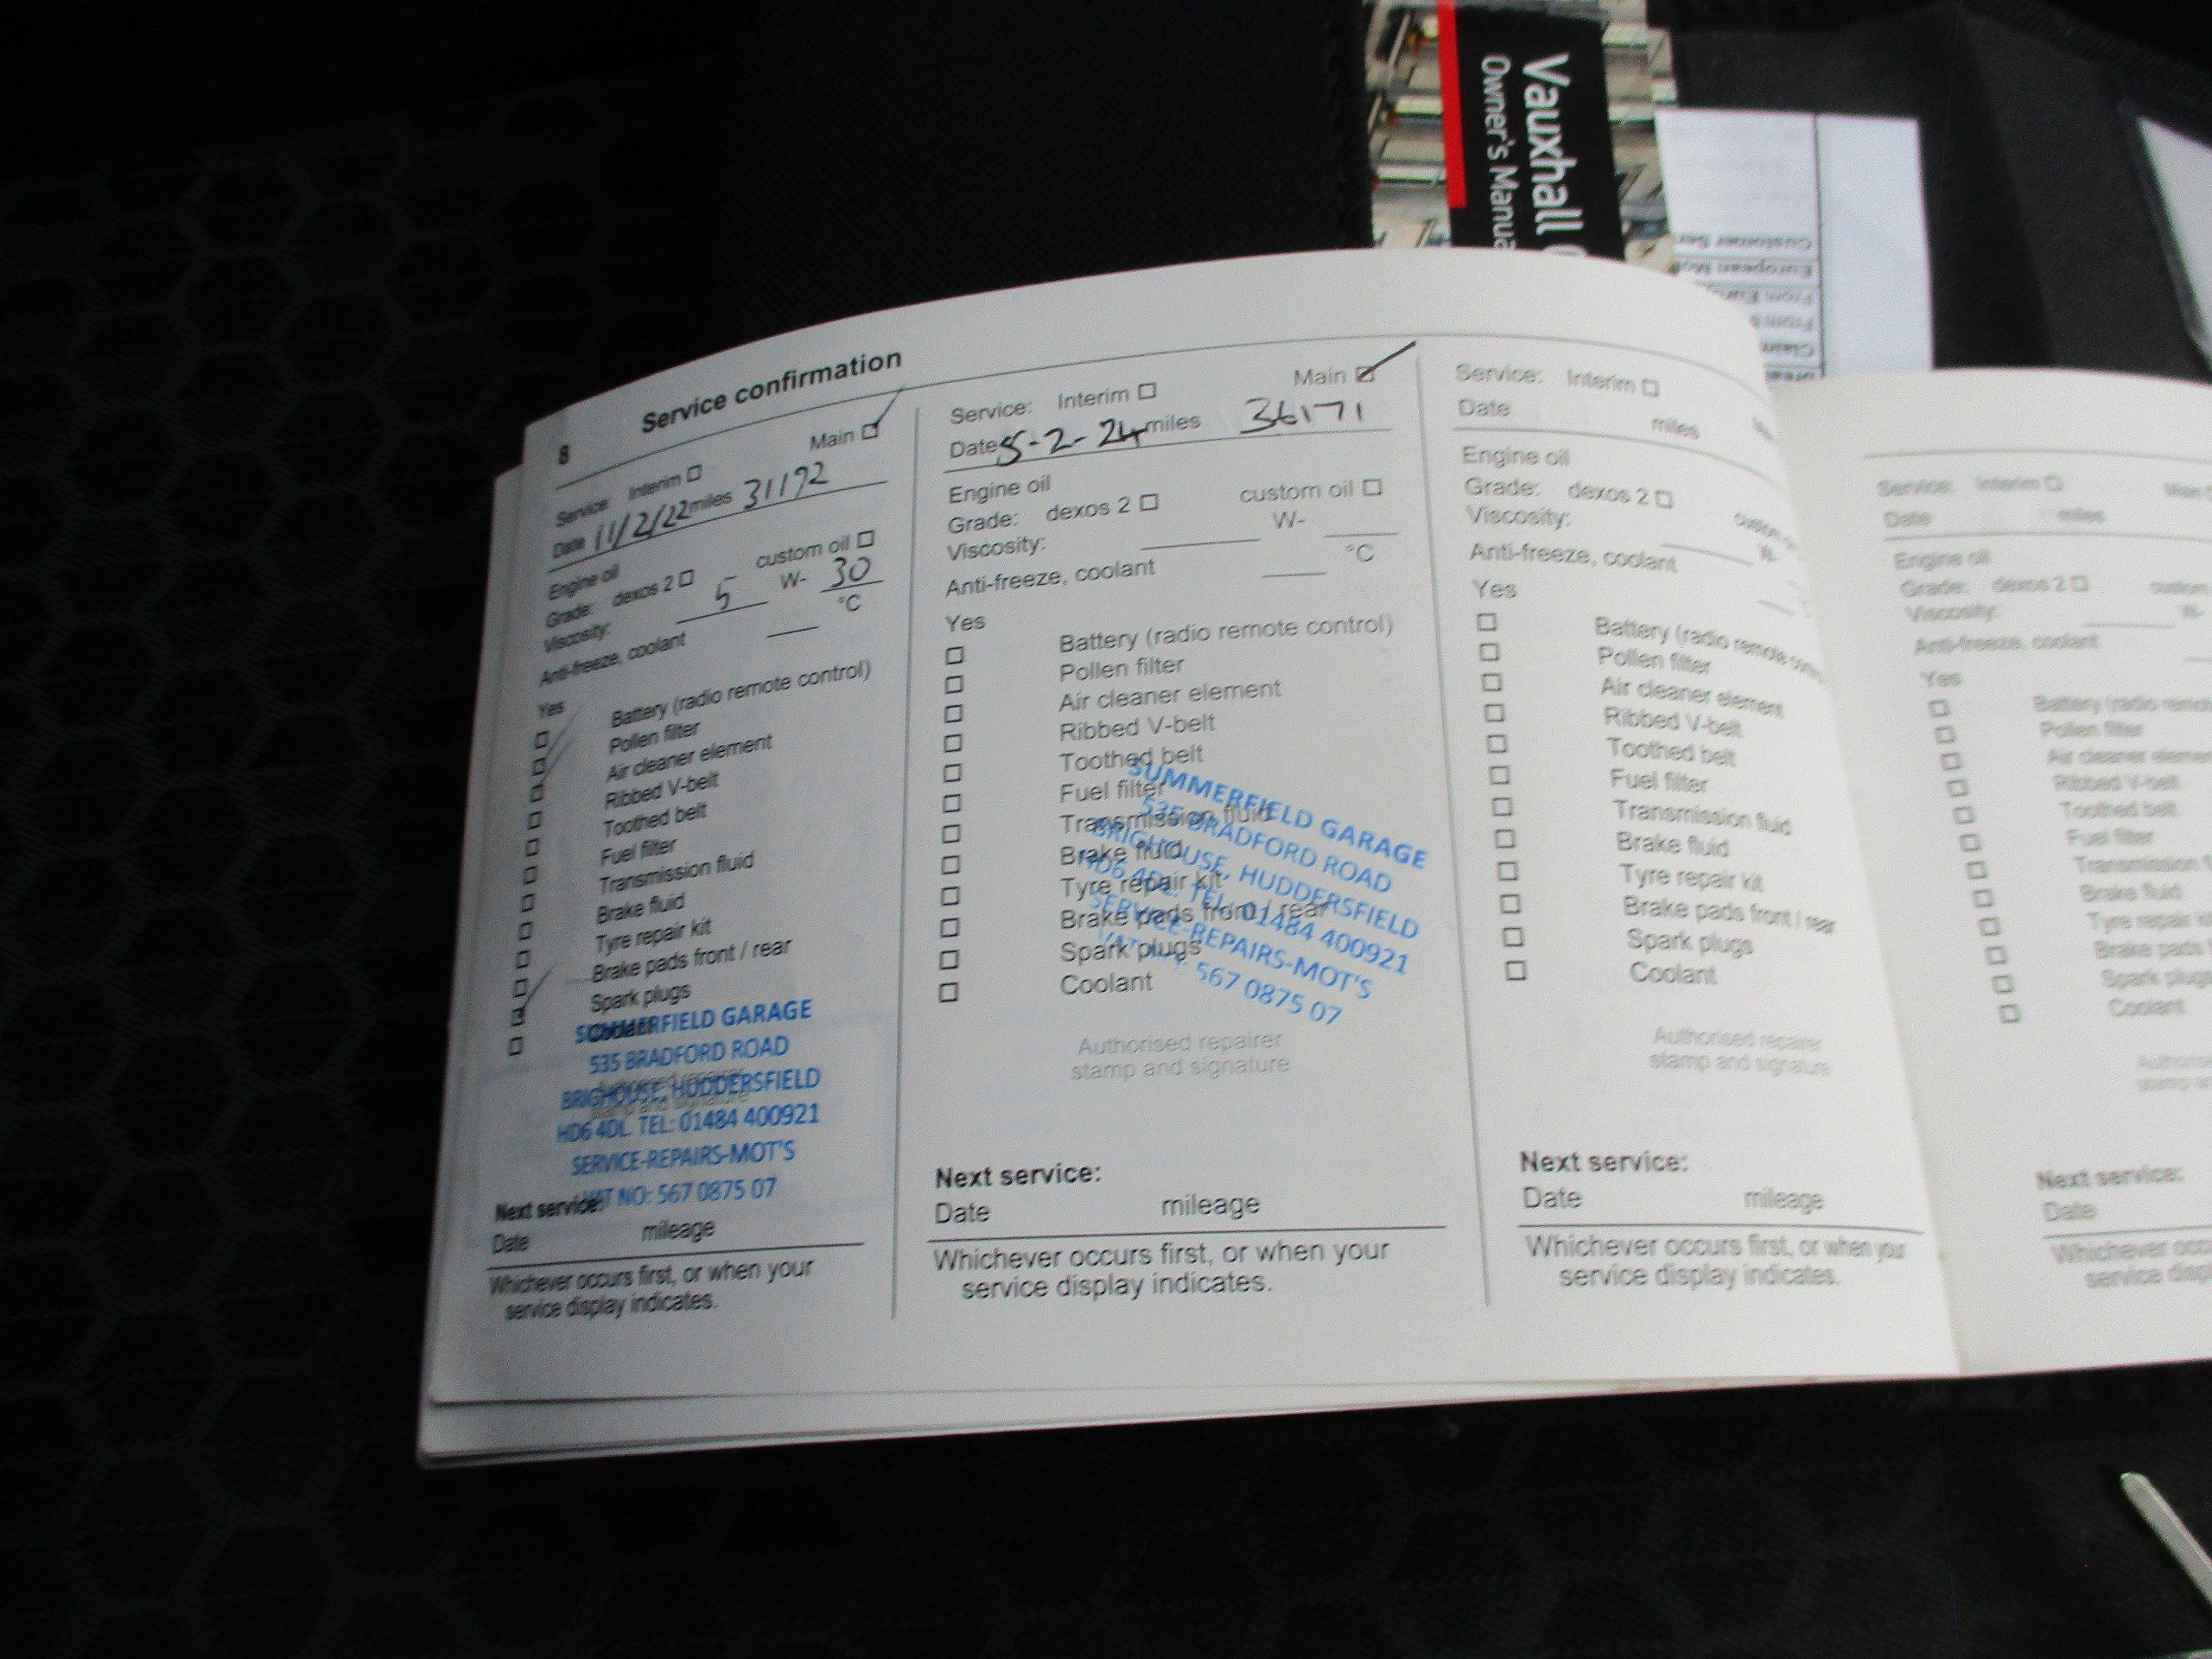 Vauxhall
Owner's Manual
Customer Ser
European Mo
8
Service confirmation
Service: Interim Main
Date 11/2/22 miles 31192
Engine oil
Grade: dexos 2 custom oil
Viscosity: 5 W- 30
Anti-freeze, coolant °C
Yes
Battery (radio remote control)
Pollen filter
Air cleaner element
Ribbed V-belt
Toothed belt
Fuel filter
Transmission fluid
Brake fluid
Tyre repair kit
Brake pads front / rear
Spark plugs
Coolant
SUMMERFIELD GARAGE
535 BRADFORD ROAD
Authorised repairer
BRIGHOUSE, HUDDERSFIELD
stamp and signature
HD6 4DL. TEL: 01484 400921
SERVICE-REPAIRS-MOT'S
VAT NO: 567 0875 07
Next service:
Date mileage
Whichever occurs first, or when your
service display indicates.
Service: Interim Main
Date 5-2-24 miles 36171
Engine oil
Grade: dexos 2 custom oil
Viscosity: W-
Anti-freeze, coolant °C
Yes
Battery (radio remote control)
Pollen filter
Air cleaner element
Ribbed V-belt
Toothed belt
Fuel filter
Transmission fluid
Brake fluid
Tyre repair kit
Brake pads front / rear
Spark plugs
Coolant
SUMMERFIELD GARAGE
535 BRADFORD ROAD
BRIGHOUSE, HUDDERSFIELD
HD6 4DL. TEL: 01484 400921
SERVICE-REPAIRS-MOT'S
VAT NO: 567 0875 07
Authorised repairer
stamp and signature
Next service:
Date mileage
Whichever occurs first, or when your
service display indicates.
Service: Interim
Date miles
Engine oil
Grade: dexos 2 custom oil
Viscosity: W-
Anti-freeze, coolant
Yes
Battery (radio remote control)
Pollen filter
Air cleaner element
Ribbed V-belt
Toothed belt
Fuel filter
Transmission fluid
Brake fluid
Tyre repair kit
Brake pads front / rear
Spark plugs
Coolant
Authorised repairer
stamp and signature
Next service:
Date mileage
Whichever occurs first, or when your
service display indicates.
Service: Interim Main
Date miles
Engine oil
Grade: dexos 2 custom
Viscosity: W-
Anti-freeze, coolant
Yes
Battery (radio remot
Pollen filter
Air cleaner elemen
Ribbed V-belt
Toothed belt
Fuel filter
Transmission f
Brake fluid
Tyre repair k
Brake pads
Spark plugs
Coolant
Authoris
stamp a
Next service:
Date
Whichever occ
service displ